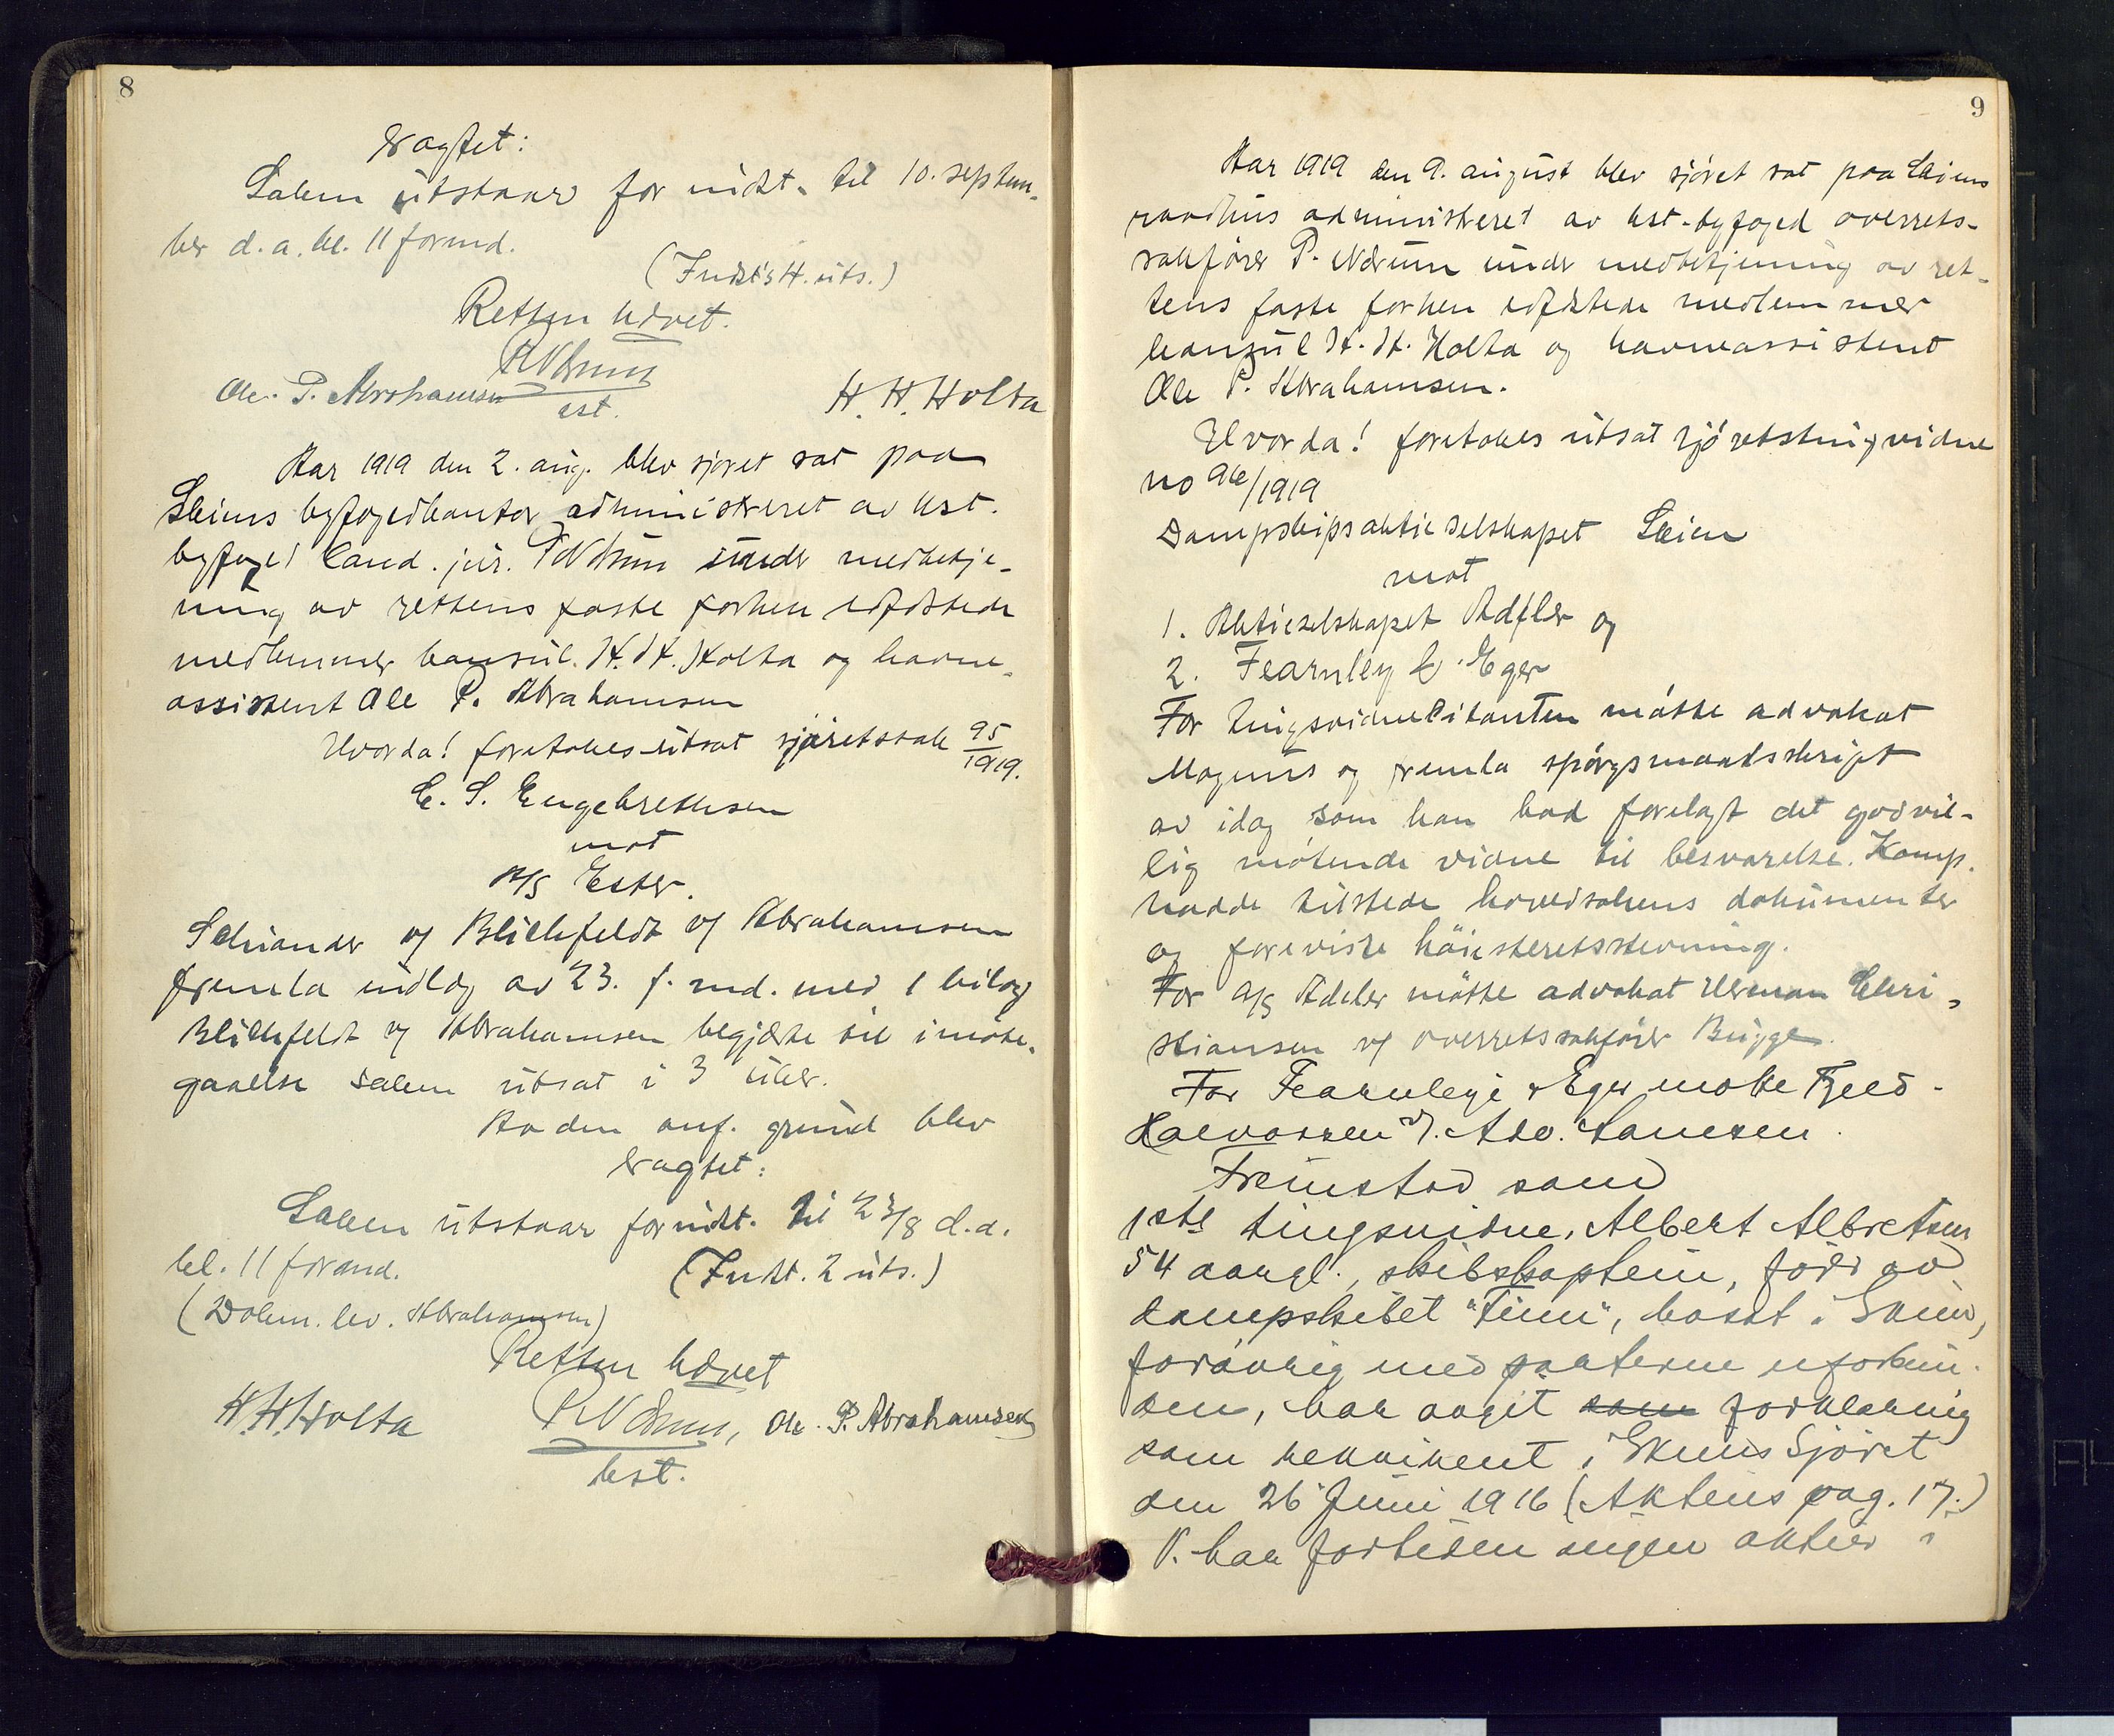 8
vagtet:
Saken utstaar for indst. til 10. septem-
ber d.a. kl. 11 formd.
(Indst's H. uts.)
Retten hævet.
P Nærum
Ole. P. Abrahamsen
est.
H. H. Holta
Aar 1919 den 2. aug. blev sjøret sat paa
Skiens byfogedkontor administreret av kst.
byfoged cand. jur. P Nærum under medbetje-
ning av rettens faste forhen edfæstede
medlemmer konsul. H. H. Holta og havne-
assistent Ole P. Abrahamsen
Hvorda! foretokes utsat sjøretssak 95/1919.
E. S. Engebrethsen
mot
A/S Ester.
Schiander og Blichfeldt v/ Abrahamsen
fremla indlæg av 23. f. md. med 1 bilag
Blichfeldt v/ Abrahamsen begjærte til imøte-
gaaelse saken utsat i 3 uker.
Av den anf. grund blev
vagtet:
Saken utstaar for indst. til 23/8 d.a.
kl. 11 formd.
(Indst. 2 uts.)
(Dokm. lev. Abrahamsen)
Retten hævet
H. H. Holta
P Nærum, Ole. P. Abrahamsen
kst.
9
Aar 1919 den 9. august blev sjøret sat paa Skiens
raadhus administreret av kst. byfoged overrets-
sakfører P. Nærum under medbetjening av ret-
tens faste forhen edfæstede medlemmer
konsul H. H. Holta og havneassistent
Ole P. Abrahamsen.
Hvorda! foretokes utsat sjøretstingsvidne
no 96/1919
Dampskipsaktieselskapet Skien
mot
1. Aktieselskapet Adeler og
2. Fearnley & Eger
For tingsvidnecitanten møtte advokat
Magnus og fremla spørgsmaalsskrift
av idag som han bad forelagt det godvil-
lig møtende vidne til besvarelse. Komp.
hadde tilstede hovedsakens dokumenter
og foreviste høiesteretsstevning.
For A/S Adeler møtte advokat Herman Chri-
stiansen v/ overretssakfører Bugge.
For Fearnleye & Eger møtte Fjeld-
Halvorsen v/. Adv. Samsen.
Fremstod som
1ste tingsvidne, Albert Albretsen
54 aar gl., skibskaptein, fører av
dampskibet "Finn", bosat i Skien,
forøvrig med parterne uforbun-
den, har avgit som forklaring
som rekvirent i Skiens Sjøret
den 26 Juni 1916 (Aktens pag. 17.)
V. har fortiden ingen aktier i